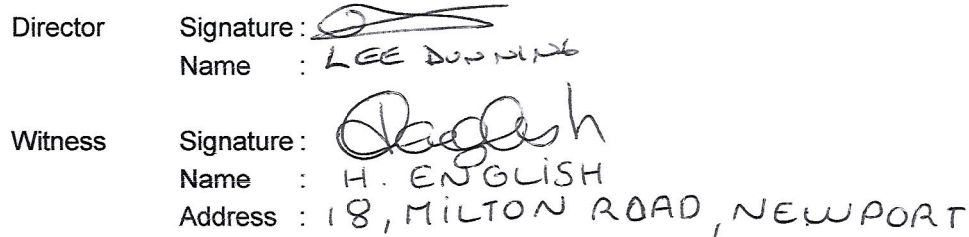 Director Signature :
Name : LEE DUNNING
Witness Signature : English
Name : H. ENGLISH
Address : 18, MILTON ROAD, NEWPORT